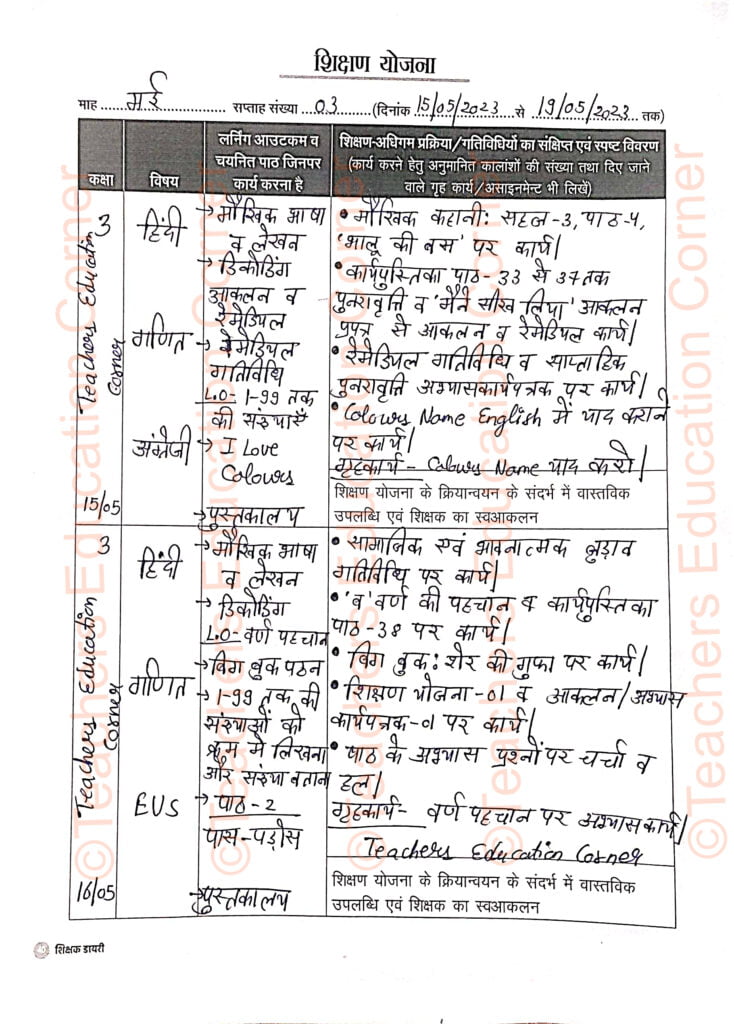 शिक्षण योजना
माह मई सप्ताह संख्या 03 (दिनांक 15/05/2023 से 19/05/2023 तक)
कक्षा
विषय
लर्निंग आउटकम व
चयनित पाठ जिनपर
कार्य करना है
शिक्षण-अधिगम प्रक्रिया/गतिविधियों का संक्षिप्त एवं स्पष्ट विवरण
(कार्य करने हेतु अनुमानित कालांशों की संख्या तथा दिए जाने
वाले गृह कार्य/असाइनमेन्ट भी लिखें)
3
Teachers Education
Corner
15/05
हिंदी
गणित
अंग्रेजी
→ मौखिक भाषा
व लेखन
→ डिकोडिंग
आकलन व
रेमेडियल
→ रेमेडियल
गतिविधि
L.O- 1-99 तक
की संख्याएँ
→ I Love
Colours
→ पुस्तकालय
• मौखिक कहानी: सहज-3, पाठ-4,
'भालू की बस' पर कार्य|
• कार्यपुस्तिका पाठ- 33 से 37 तक
पुनरावृत्ति व 'मैंने सीख लिया' आकलन
प्रपत्र से आकलन व रेमेडियल कार्य|
• रेमेडियल गतिविधि व साप्ताहिक
पुनरावृत्ति अभ्यासकार्यपत्रक पर कार्य|
• Colours Name English में याद कराने
पर कार्य|
गृहकार्य - Colours Name याद करो|
शिक्षण योजना के क्रियान्वयन के संदर्भ में वास्तविक
उपलब्धि एवं शिक्षक का स्वआकलन
3
Teachers Education
Corner
16/05
हिंदी
गणित
EUS
→ मौखिक भाषा
व लेखन
→ डिकोडिंग
L.O- वर्ण पहचान
→ बिग बुक पठन
→ 1-99 तक की
संख्याओं को
क्रम में लिखना
और संख्या बताना
→ पाठ - 2
पास-पड़ोस
→ पुस्तकालय
• सामाजिक एवं भावनात्मक जुड़ाव
गतिविधि पर कार्य|
• 'व' वर्ण की पहचान व कार्यपुस्तिका
पाठ-38 पर कार्य|
• बिग बुक: शेर की गुफा पर कार्य|
• शिक्षण योजना-01 व आकलन/अभ्यास
कार्यपत्रक-01 पर कार्य|
• पाठ के अभ्यास प्रश्नों पर चर्चा व
हल|
गृहकार्य- वर्ण पहचान पर अभ्यास कार्य|
Teachers Education Corner
शिक्षण योजना के क्रियान्वयन के संदर्भ में वास्तविक
उपलब्धि एवं शिक्षक का स्वआकलन
शिक्षक डायरी
©Teachers Education Corner
©Teachers Education Corner
©Teachers Education Corner
©Teachers Education Corner